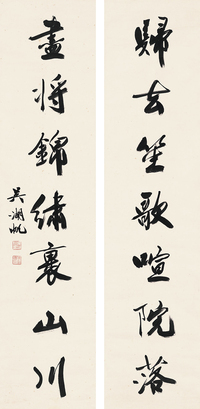 歸去笙歌喧院落
盡將錦繡裹山川
吳湖帆